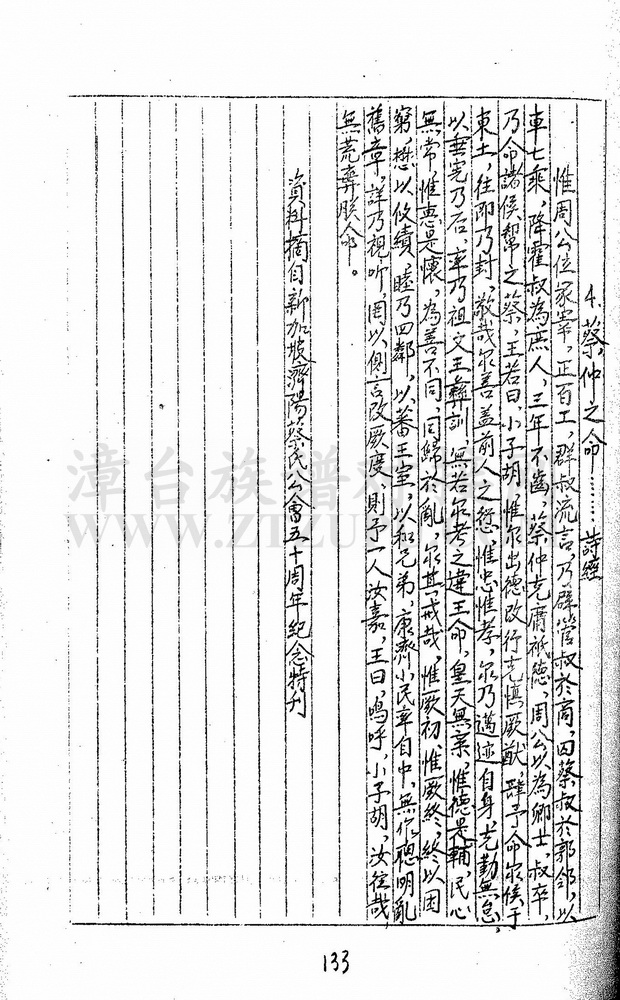 4. 蔡仲之命……詩經
惟周公位冢宰，正百工，群叔流言，乃辟管叔於商，囚蔡叔於郭鄰，以
車七乘，降霍叔為庶人，三年不齒，蔡仲克庸祗德，周公以為卿士，叔卒，
乃命諸侯幫之蔡，王若曰，小子胡，惟尔出德改行克慎厥猷，肆予命尔侯于
東土，往即乃封，敬哉尔善盖前人之愆，惟忠惟孝，尔乃邁迹自身，克勤無怠，
以垂憲乃后，率乃祖文王彝訓，無若尔考之違王命，皇天無亲，惟德是輔，民心
無常惟惠是懷，為善不同，同歸於亂，尔其戒哉，惟厥初，惟厥終，終以困
窮，懋以攸績，睦乃四鄰，以蕃王室，以和兄弟，康濟小民率自中，無作聰明亂
舊章，詳乃視听，罔以側言改厥度，則予一人汝嘉，王曰，嗚呼，小子胡，汝往哉
無荒棄朕命。
資料摘自新加坡濟陽蔡氏公會五十周年紀念特刊
133
漳台族譜